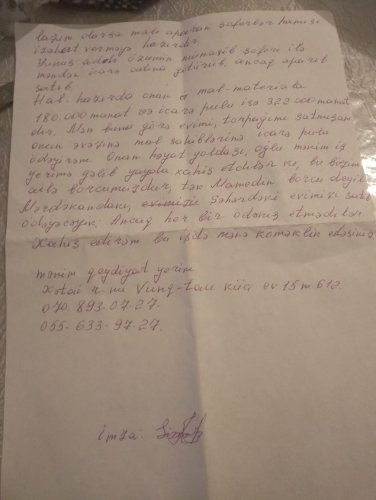 lazım olarsa malı aparan şoferlər hamısı
izahat verməyə hazırdır.
Yunis adəti özünün münasib şoferi ilə
məndən icarə adına götürüb, ancaq aparıb
satıb.
Hal-hazırda onan mal-materiala
180.000 manat və icarə pulu isə 322.000 manat
dır. Mən buna görə evimi, torpağımı satmışam
onun əvəzinə mal sahiblərinə icarə pulu
ödəyirəm. Onun həyat yoldaşı, oğlu mənim iş
yerimə gəlib yayda xahiş etdilər ki, bu bizim
ailə borcumuzdur, tək Məmmədin borcu deyil.
Mərdəkandakı, şəhərdəki evimizi satıb
ödəyəcəyik. Ancaq heç bir ödəniş etmədilər.
Xahiş edirəm bu işdə mənə köməklik edəsiniz
mənim qeydiyyat yerim
Xətai r-nu Vunq-tau küç ev 15 m 612.
070. 893. 07. 27.
055. 633. 97. 27.
imza: